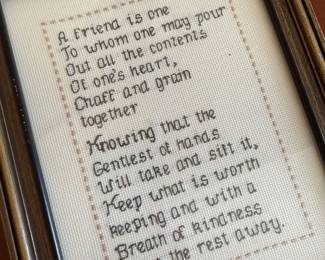 A friend is one
To whom one may pour
Out all the contents
Of one's heart,
Chaff and grain
together
Knowing that the
Gentlest of hands
Will take and sift it,
Keep what is worth
keeping and with a
Breath of kindness
the rest away.